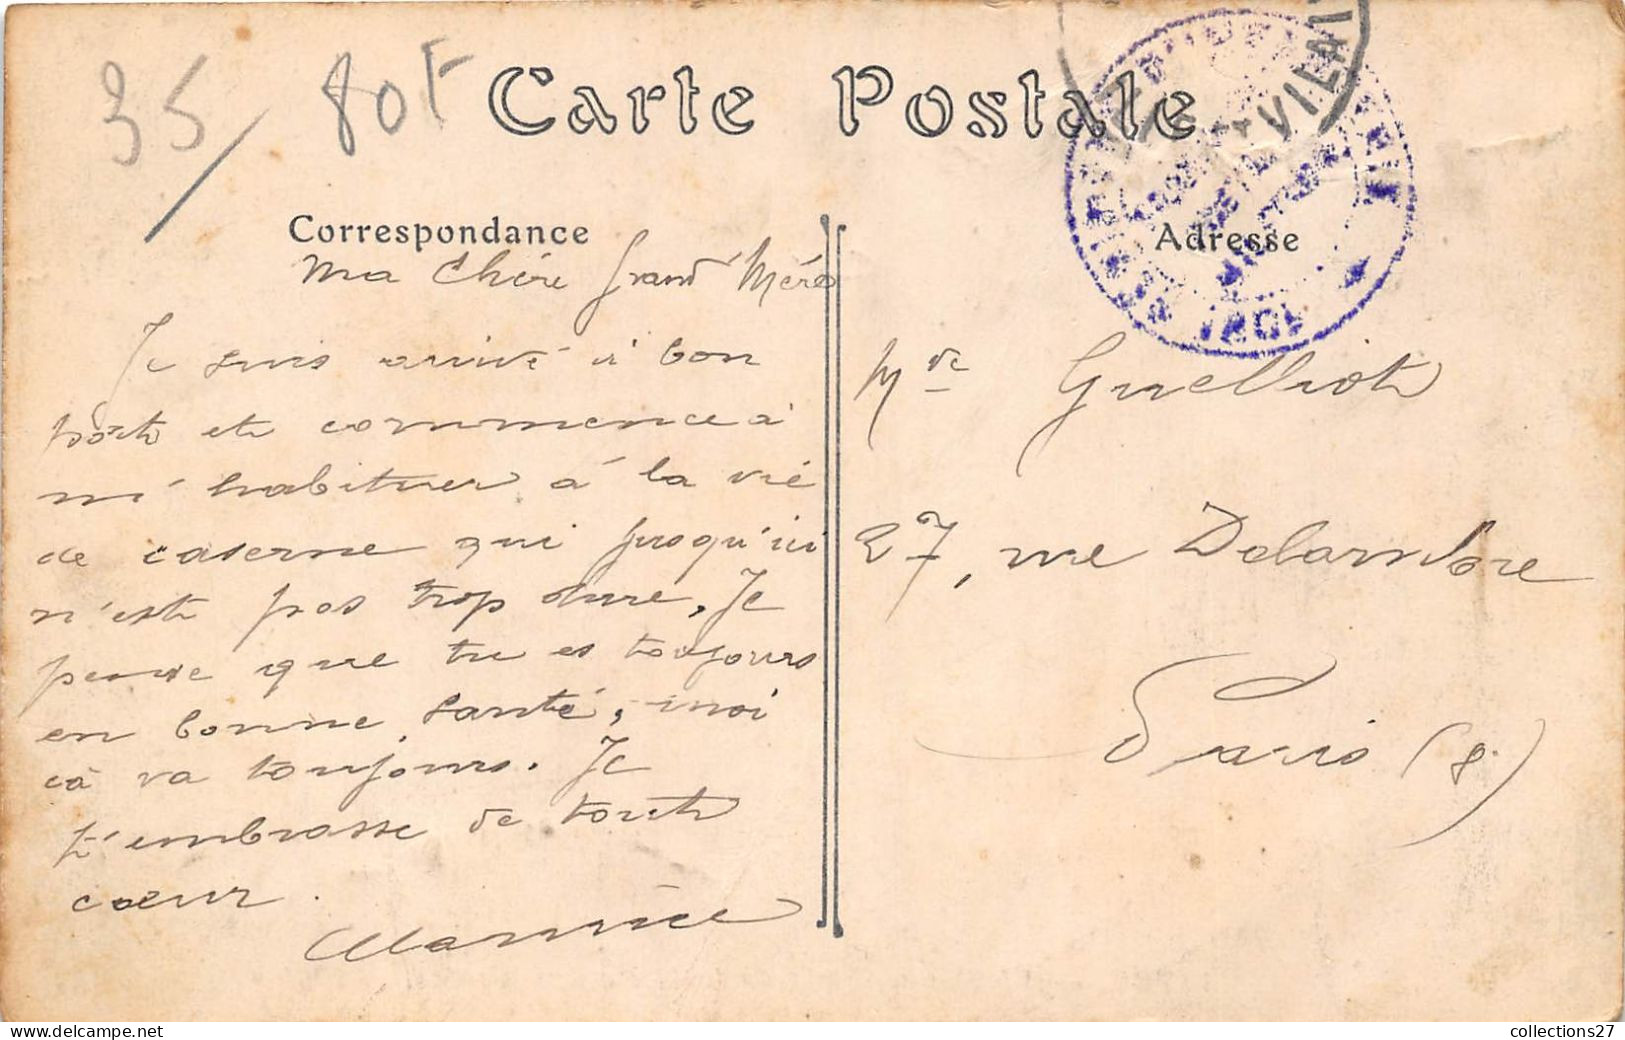 35/
80F
Carte Postale
VILAI
Correspondance
Adresse
Ma Chère Grand' Mère
Je suis arrivé à bon
port et commence à
m'habituer à la vie
de caserne qui jusqu'ici
n'est pas trop dure. Je
pense que tu es toujours
en bonne santé, moi
cà va toujours. Je
t'embrasse de tout
cœur.
Maurice
Mde Guelliot
27, rue Delambre
Paris
collections27